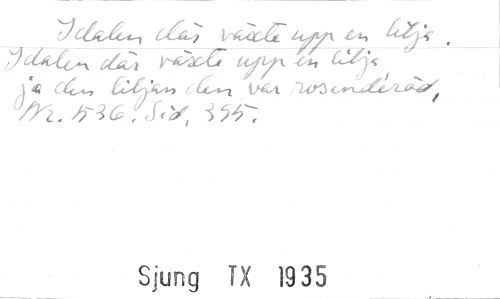 I dalen där växte upp en lilja.
I dalen där växte upp en lilja
ja den liljan den var rosenderöd,
Nr. 536. Sid. 395.
Sjung TX 1935